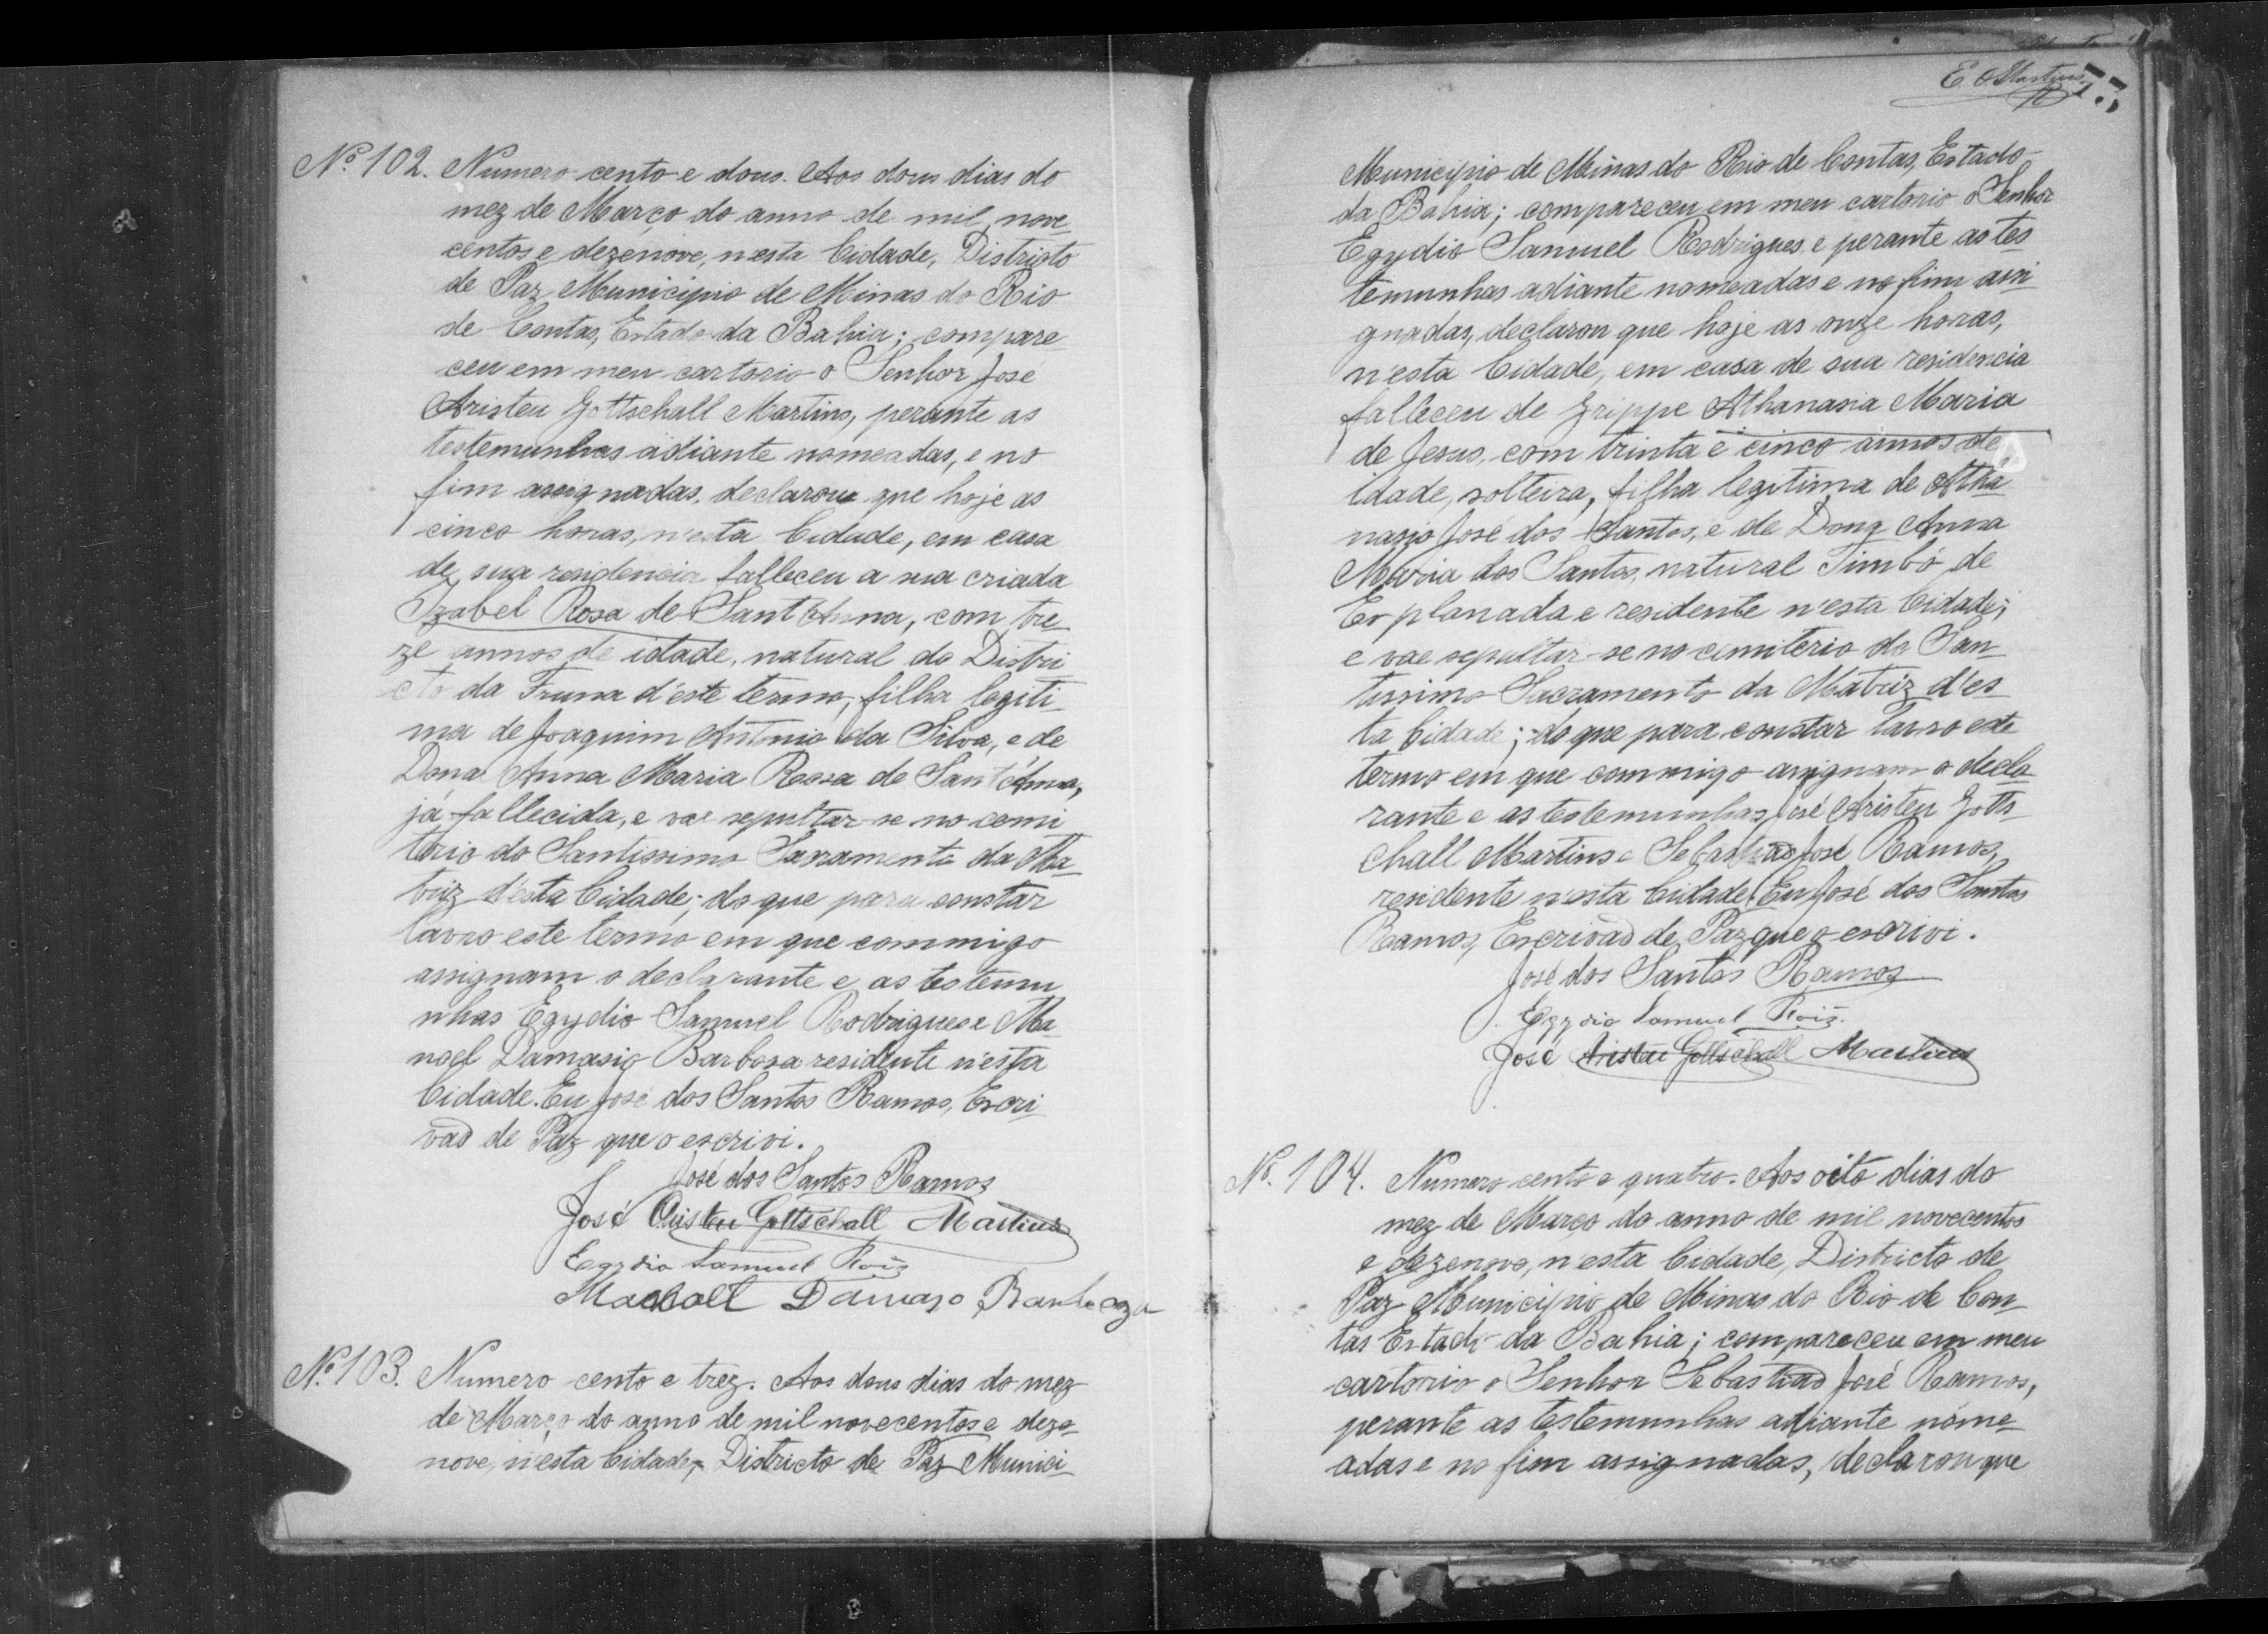 Nº 102. Numero cento e dous. Aos dous dias do
mez de Março do anno de mil nove
centos e dezenove, n'esta Cidade, Districto
de Paz Municipio de Minas do Rio
de Contas, Estado da Bahia; compare
ceu em meu cartorio o Senhor José
Aristeu Gottschall Martins, perante as
testemunhas adiante nomeadas, e no
fim assignadas, declarou que hoje as
cinco horas, n'esta Cidade, em casa
de sua residencia falleceu a sua criada
Izabel Rosa de Sant'Anna, com tre
ze annos de idade, natural do Distri
cto da Fruna d'este termo, filha legiti
ma de Joaquim Antonio da Silva, e de
Dona Anna Maria Rosa de Sant'Anna,
já fallecida, e vae sepultar-se no cemi
terio do Santissimo Sacramento da Ma
triz d'esta Cidade; do que para constar
lavro este termo em que commigo
assignam o declarante e as testemu
nhas Egydio Samuel Rodrigues e Ma
noel Damasio Barbosa residente n'esta
Cidade. Eu José dos Santos Ramos, Escri
vão de Paz que o escrivi.
José dos Santos Ramos
José Aristeu Gottschall Martins
Egydio Samuel Roiz
Damazo
Nº 103. Numero cento e trez. Aos dous dias do mez
de Março do anno de mil novecentos e deze
nove, n'esta Cidade, Districto de Paz Munici
E. Martins
Municipio de Minas do Rio de Contas, Estado
da Bahia; compareceu em meu cartorio o Senhor
Egydio Samuel Rodrigues e perante as tes
temunhas adiante nomeadas e no fim assi
gnadas, declarou que hoje as onze horas,
n'esta Cidade, em casa de sua residencia
falleceu de Grippe Athanasia Maria
de Jesus, com trinta e cinco annos de
idade, solteira, filha legitima de Atha
nasio José dos Santos, e de Dona Anna
Maria dos Santos, natural Timbó de
Esplanada e residente n'esta Cidade;
e vae sepultar-se no cimiterio do San
tissimo Sacramento da Matriz d'es
ta Cidade; do que para constar lavro este
termo em que commigo assignam o decla
rante e as testemunhas José Aristeu Gotts
chall Martins e Sebastião José Ramos,
residente n'esta Cidade. Eu José dos Santos
Ramos, Escrivão de Paz que o escrivi.
José dos Santos Ramos
Egydio Samuel Roiz.
José Aristeu Gottschall Martins
Nº. 104. Numero cento e quatro. Aos oito dias do
mez de Março do anno de mil novecentos
e dezenove, n'esta Cidade, Districto de
Paz Municipio de Minas do Rio de Con
tas Estado da Bahia; compareceu em meu
cartorio o Senhor Sebastião José Ramos,
perante as testemunhas adiante nome
adas e no fim assignadas, declarou que